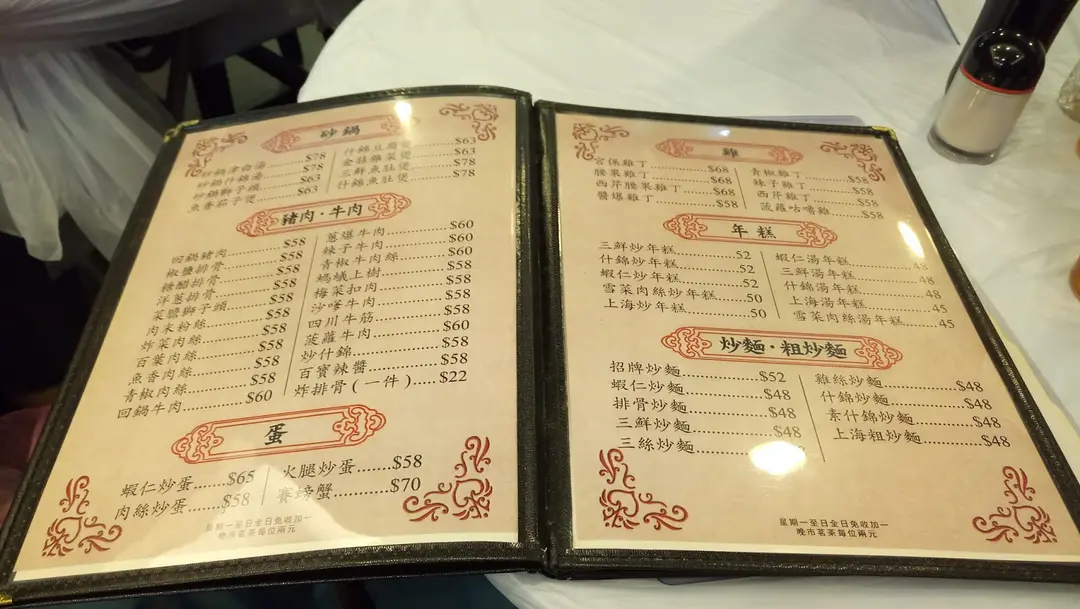 砂鍋
砂鍋津白湯..........$78
砂鍋什錦湯..........$78
砂鍋獅子頭..........$63
魚香茄子煲..........$63
什錦豆腐煲..........$63
金菇雜菜煲..........$63
三鮮魚肚煲..........$78
什錦魚肚煲..........$78
豬肉·牛肉
回鍋豬肉..........$58
椒鹽排骨..........$58
糖醋排骨..........$58
洋蔥排骨..........$58
菜膽獅子頭..........$58
肉末粉絲..........$58
炸菜肉絲..........$58
百葉肉絲..........$58
魚香肉絲..........$58
青椒肉絲..........$58
回鍋牛肉..........$60
蔥爆牛肉..........$60
辣子牛肉..........$60
青椒牛肉絲..........$60
螞蟻上樹..........$58
梅菜扣肉..........$58
沙嗲牛肉..........$58
四川牛筋..........$58
菠蘿牛肉..........$60
炒什錦..........$58
百寶辣醬..........$58
炸排骨(一件)....$22
蛋
蝦仁炒蛋......$65
肉絲炒蛋......$58
火腿炒蛋......$58
賽螃蟹..........$70
星期一至日全日免收加一
晚市茗茶每位兩元
雞
宮保雞丁..........$68
腰果雞丁..........$68
西芹腰果雞丁..........$68
醬爆雞丁..........$58
青椒雞丁..........$58
辣子雞丁..........$58
西芹雞丁..........$58
菠蘿咕嚕雞.....$58
年糕
三鮮炒年糕..........52
什錦炒年糕..........52
蝦仁炒年糕..........52
雪菜肉絲炒年糕.....50
上海炒年糕..........50
蝦仁湯年糕..........48
三鮮湯年糕..........48
什錦湯年糕..........48
上海湯年糕..........45
雪菜肉絲湯年糕.....45
炒麵·粗炒麵
招牌炒麵..........$52
蝦仁炒麵..........$48
排骨炒麵..........$48
三鮮炒麵..........$48
三絲炒麵..........
雞絲炒麵..........$48
什錦炒麵..........$48
素什錦炒麵..........$48
上海粗炒麵..........$48
星期一至日全日免收加一
晚市茗茶每位兩元